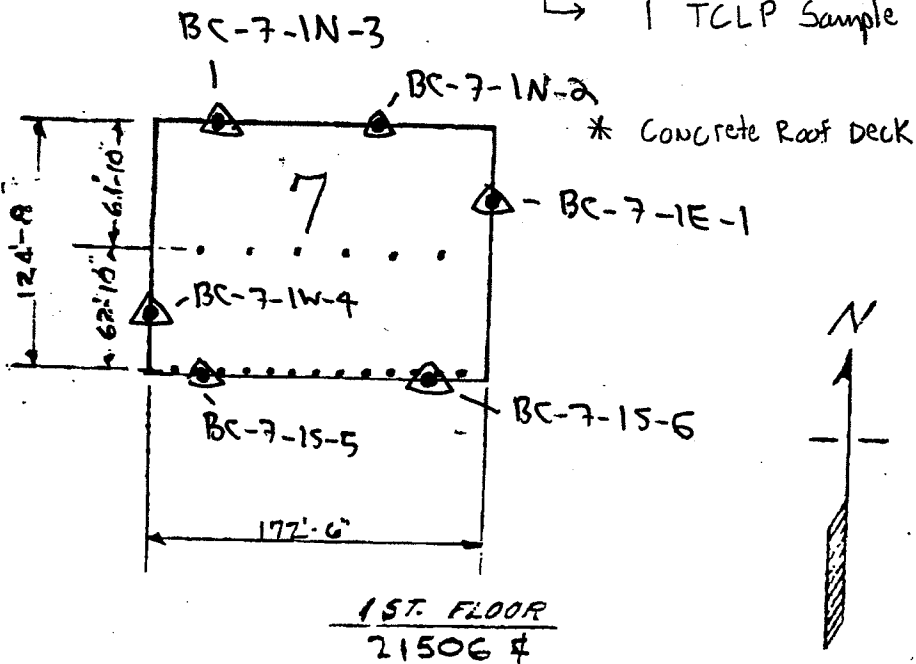 ↳ 1 TCLP Sample
BC-7-1N-3
BC-7-1N-2
* Concrete Roof Deck
7
BC-7-1E-1
124'-8"
61'-10"
62'-10"
BC-7-1W-4
N
BC-7-1S-5
BC-7-1S-6
172'-6"
1 ST. FLOOR
21506 ⌷